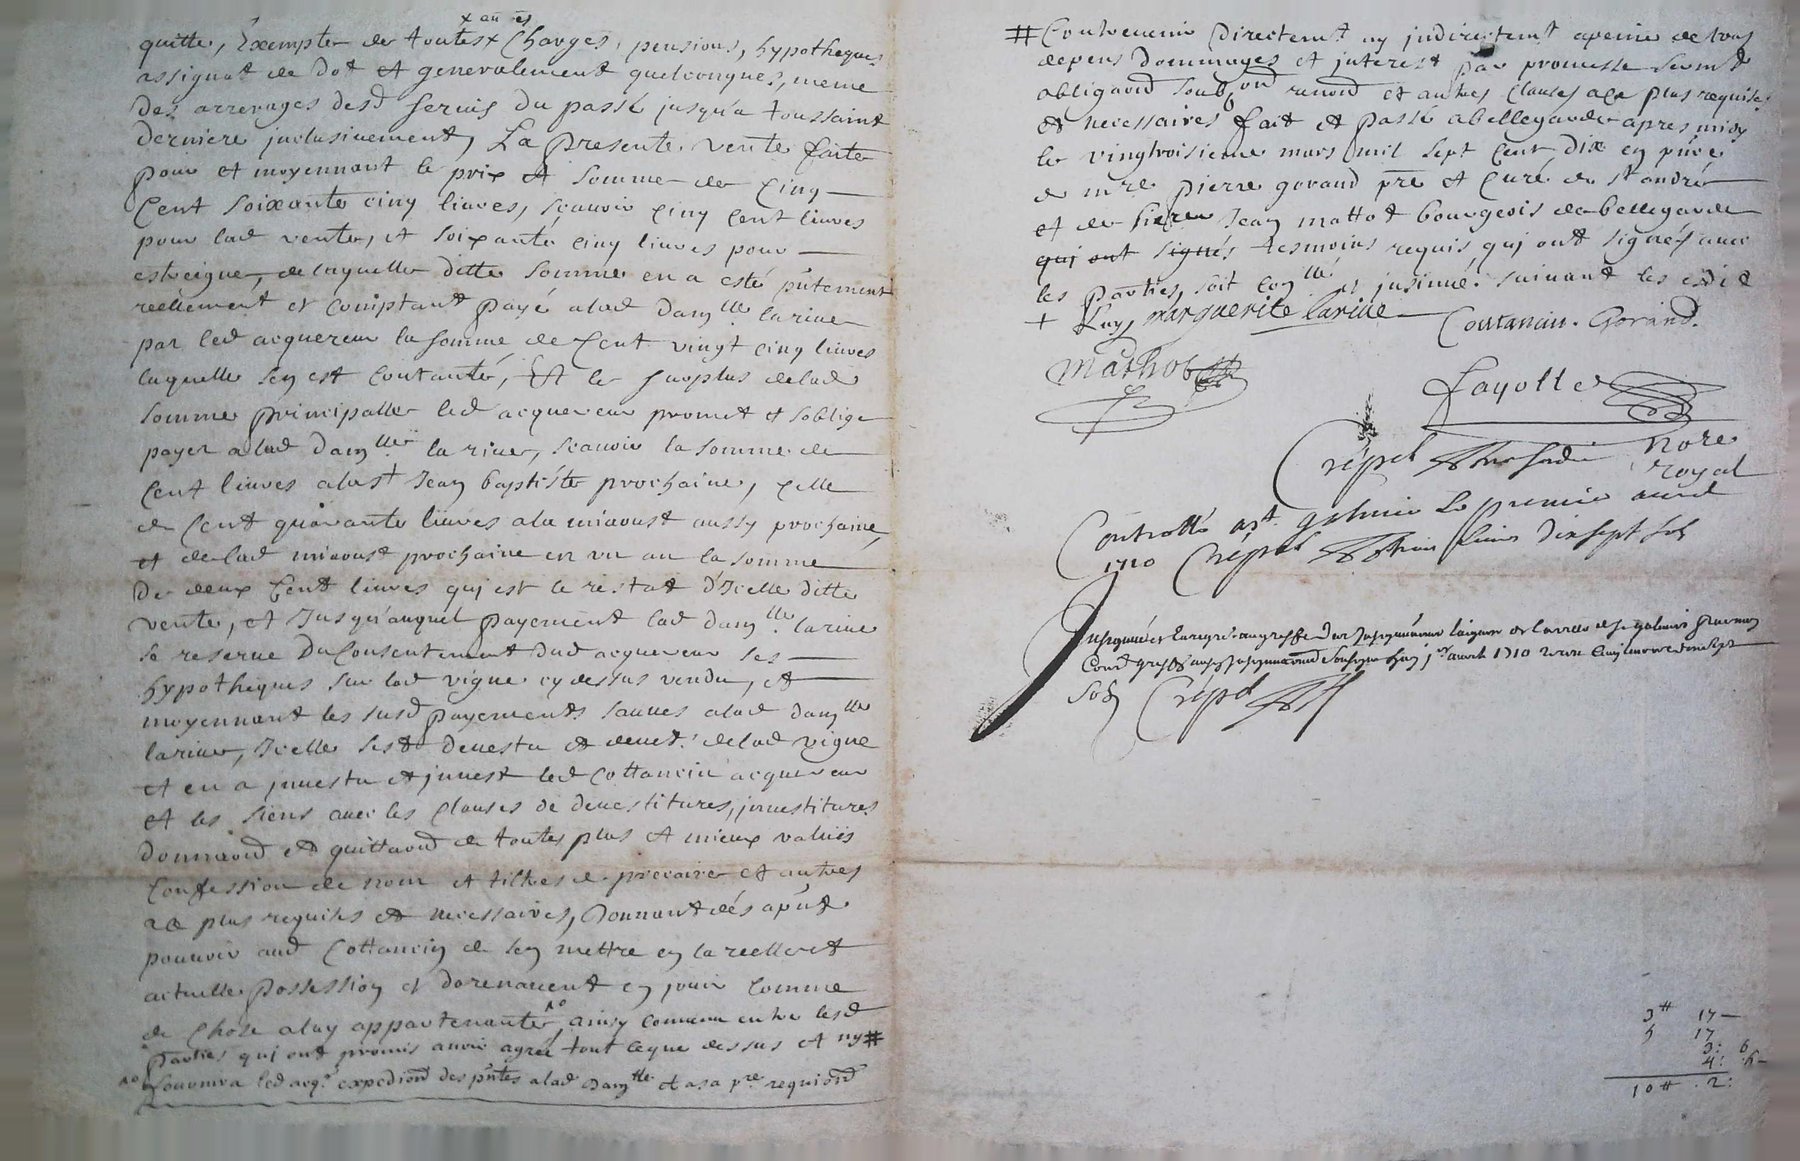 x autres
quitte, Exempte de toutes x Charges, pensions, hypotheques
assignat de Dot et generalement quelconques, meme
Des arrerages desd servis du passé jusqu'a toussaint
derniere jnclusiuement, La presente vente faite
pour et moyennant le prix et somme de Cinq
Cent soixante cinq liures, scauoir cinq cent liures
pour lad vente, et soixante cinq liures pour
estreigne, de laquelle ditte somme en a esté pñtement
reellement et Comptant payé a lad damlle lariue
par led acquereur la somme de Cent vingt cinq liures
laquelle sen est Contanté, Et le surplus de lad
somme principalle led acquereur promet et soblige
payer a lad damlle lariue, scauoir la somme de
Cent liures a la st Jean baptiste prochaine, celle
de Cent quarante liures a la miaoust aussy prochaine,
et de lad miaoust prochaine en un an la somme
De deux Cent liures qui est le restat d'Icelle ditte
vente, et Jusqu'auquel payement lad damlle lariue
se reserue Du Consentement dud acquereur ses
hypotheques sur lad vigne cy dessus vendu, et
moyennant les susd payements sauues a lad damlle
lariue, Icelle sest deuestu et deuet de lad vigne
et en a jnuestu et jnuest led Cottancin acquereur
et les siens auec les Clauses de deuestitures, jnuestitures
donnaond et quittaond de toutes plus et mieux values
Confession de nom et tiltre de precaire et autres
a ce plus requises et necessaires, Donnant dés apñt
pouuoir aud Cottancin de sen mettre en la reelle et
actuelle possession et dorenauant en jouir Comme
de Chose a luy appartenante, No ainsy Conuenu entre lesd
parties qui ont promis auoir agreé tout ce que dessus et ny #
No fournira led acqr expediond des pñtes a lad damlle et a sa pre requiond
# Contreuenir Directemt ny jndirectemt a peine de tous
depens Dommages et jnterest par promesse sermt
obligaond soubon renond et autres clauses a ce plus requises
et necessaires fait et passé a bellegarde apres midy
le vingtroisieme mars mil sept Cent dix en pñce
de mre pierre gorand pre et Curé de st andré
et de sieur Jean mattot bourgeois de bellegarde
qui ont signés tesmoins requis, qui ont signés auec
les parties, soit conllé et jnsinué suiuant les edit
+ Luy, marguerite lariue Coutancin. Gorand.
Mathot
fayolle
Crepet nore
royal
Controllé a st galmier Le premier auril
1710 Crepet liures dixsept sols
Insignué et Enregré au greffe des Insignuaons st galmier
1er auril 1710
sols Crepet
3# 17
5 17
3: 6
4: 6
10# . 2: